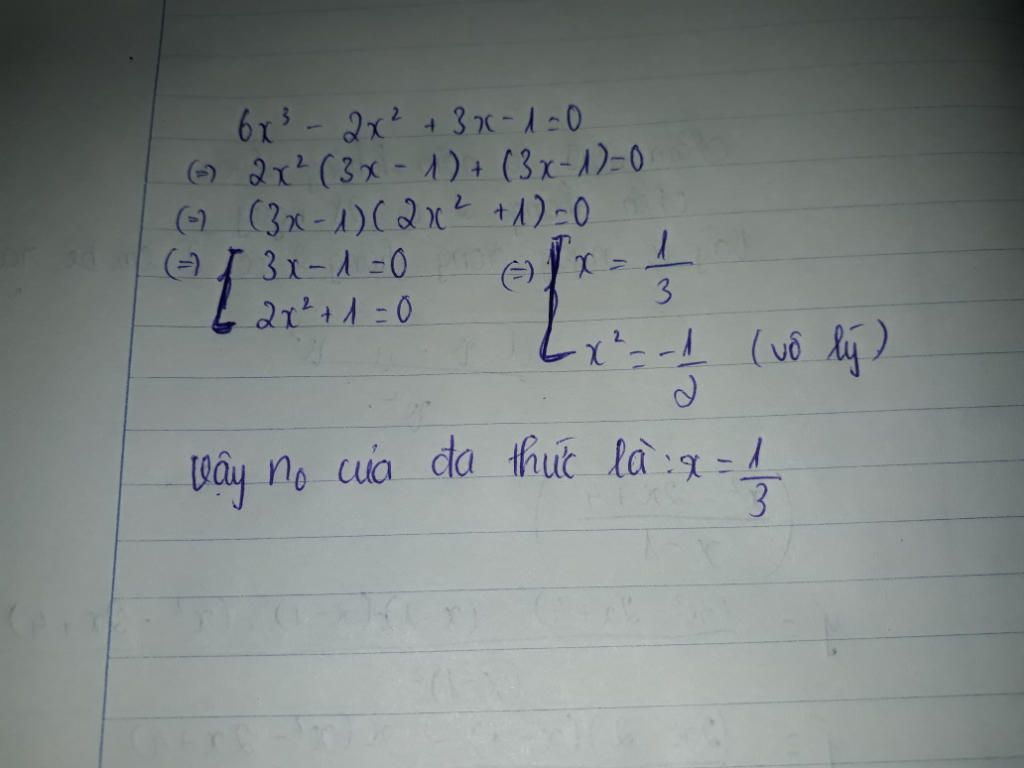 6x³ - 2x² + 3x - 1 = 0
(=) 2x² (3x - 1) + (3x - 1) = 0
(=) (3x - 1)(2x² + 1) = 0
(=) [ 3x - 1 = 0 (=) [ x = 1/3
2x² + 1 = 0
x² = -1/2 (vô lý)
Vậy n₀ của đa thức là: x = 1/3